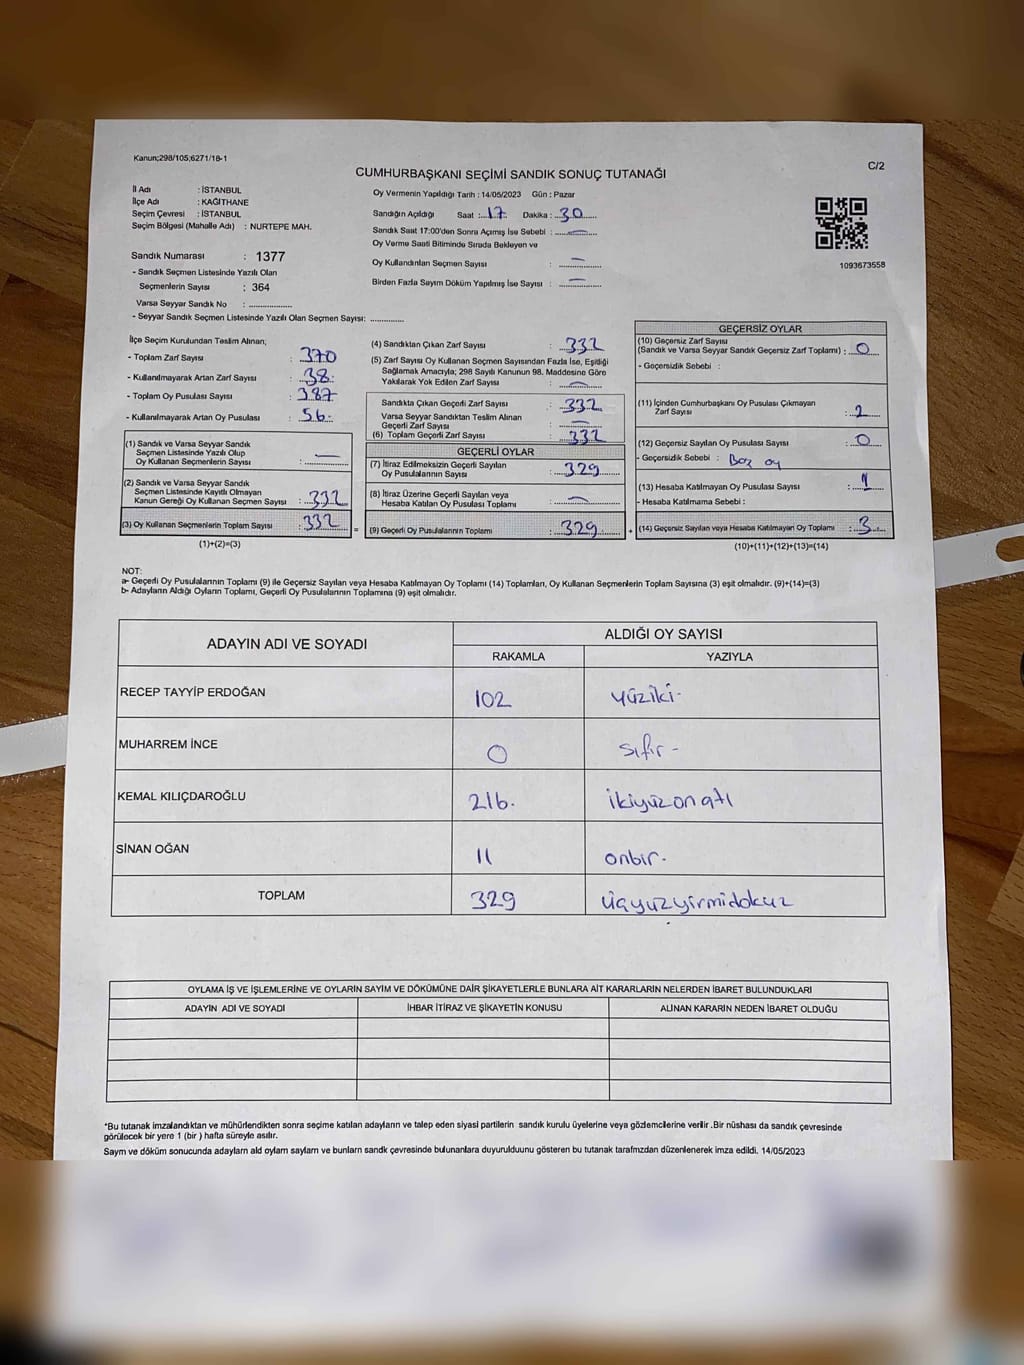 Kanun;298/105;6271/18-1
C/2
CUMHURBAŞKANI SEÇİMİ SANDIK SONUÇ TUTANAĞI
İl Adı : İSTANBUL
İlçe Adı : KAĞITHANE
Seçim Çevresi : İSTANBUL
Seçim Bölgesi (Mahalle Adı) : NURTEPE MAH.
Sandık Numarası : 1377
- Sandık Seçmen Listesinde Yazılı Olan
Seçmenlerin Sayısı : 364
Varsa Seyyar Sandık No : ....................
- Seyyar Sandık Seçmen Listesinde Yazılı Olan Seçmen Sayısı: ...............
Oy Vermenin Yapıldığı Tarih : 14/05/2023 Gün : Pazar
Sandığın Açıldığı Saat : 17 Dakika : 30
Sandık Saat 17:00'den Sonra Açımış İse Sebebi : —
Oy Verme Saati Bitiminde Sırada Bekleyen ve
Oy Kullandırılan Seçmen Sayısı : —
Birden Fazla Sayım Döküm Yapılmış İse Sayısı : —
1093673558
İlçe Seçim Kurulundan Teslim Alınan;
- Toplam Zarf Sayısı : 370
- Kullanılmayarak Artan Zarf Sayısı : 38
- Toplam Oy Pusulası Sayısı : 387
- Kullanılmayarak Artan Oy Pusulası : 56
(1) Sandık ve Varsa Seyyar Sandık
Seçmen Listesinde Yazılı Olup
Oy Kullanan Seçmenlerin Sayısı : —
(2) Sandık ve Varsa Seyyar Sandık
Seçmen Listesinde Kayıtlı Olmayan
Kanun Gereği Oy Kullanan Seçmen Sayısı : 332
(3) Oy Kullanan Seçmenlerin Toplam Sayısı : 332
(1)+(2)=(3)
(4) Sandıktan Çıkan Zarf Sayısı : 332
(5) Zarf Sayısı Oy Kullanan Seçmen Sayısından Fazla İse, Eşitliği
Sağlamak Amacıyla; 298 Sayılı Kanunun 98. Maddesine Göre
Yakılarak Yok Edilen Zarf Sayısı : —
Sandıkta Çıkan Geçerli Zarf Sayısı : 332
Varsa Seyyar Sandıktan Teslim Alınan
Geçerli Zarf Sayısı : —
(6) Toplam Geçerli Zarf Sayısı : 332
GEÇERLİ OYLAR
(7) İtiraz Edilmeksizin Geçerli Sayılan
Oy Pusulasının Sayısı : 329
(8) İtiraz Üzerine Geçerli Sayılan veya
Hesaba Katılan Oy Pusulası Toplamı : —
= (9) Geçerli Oy Pusulalarının Toplamı : 329 +
GEÇERSİZ OYLAR
(10) Geçersiz Zarf Sayısı
(Sandık ve Varsa Seyyar Sandık Geçersiz Zarf Toplamı) : 0
- Geçersizlik Sebebi :
(11) İçinden Cumhurbaşkanı Oy Pusulası Çıkmayan
Zarf Sayısı : 2
(12) Geçersiz Sayılan Oy Pusulası Sayısı : 0
- Geçersizlik Sebebi : Boz oy
(13) Hesaba Katılmayan Oy Pusulası Sayısı : 1
- Hesaba Katılmama Sebebi :
(14) Geçersiz Sayılan veya Hesaba Katılmayan Oy Toplamı : 3
(10)+(11)+(12)+(13)=(14)
NOT:
a- Geçerli Oy Pusulalarının Toplamı (9) ile Geçersiz Sayılan veya Hesaba Katılmayan Oy Toplamı (14) Toplamları, Oy Kullanan Seçmenlerin Toplam Sayısına (3) eşit olmalıdır. (9)+(14)=(3)
b- Adayların Aldığı Oyların Toplamı, Geçerli Oy Pusulalarının Toplamına (9) eşit olmalıdır.
ADAYIN ADI VE SOYADI
ALDIĞI OY SAYISI
RAKAMLA YAZIYLA
RECEP TAYYİP ERDOĞAN 102 yüziki-
MUHARREM İNCE 0 sıfır-
KEMAL KILIÇDAROĞLU 216. ikiyüzonatı
SİNAN OĞAN 11 onbir-
TOPLAM 329 üçyüzyirmidokuz
OYLAMA İŞ VE İŞLEMLERİNE VE OYLARIN SAYIM VE DÖKÜMÜNE DAİR ŞİKAYETLERLE BUNLARA AİT KARARLARIN NELERDEN İBARET BULUNDUKLARI
ADAYIN ADI VE SOYADI İHBAR İTİRAZ VE ŞİKAYETİN KONUSU ALINAN KARARIN NEDEN İBARET OLDUĞU
*Bu tutanak imzalandıktan ve mühürlendikten sonra seçime katılan adayların ve talep eden siyasi partilerin sandık kurulu üyelerine veya gözlemcilerine verilir .Bir nüshası da sandık çevresinde
görülecek bir yere 1 (bir ) hafta süreyle asılır.
Sayım ve döküm sonucunda adaylarn ald oylarn saylarn ve bunlarn sandk çevresinde bulunanlara duyurulduunu gösteren bu tutanak tarafmzdan düzenlenerek imza edildi. 14/05/2023